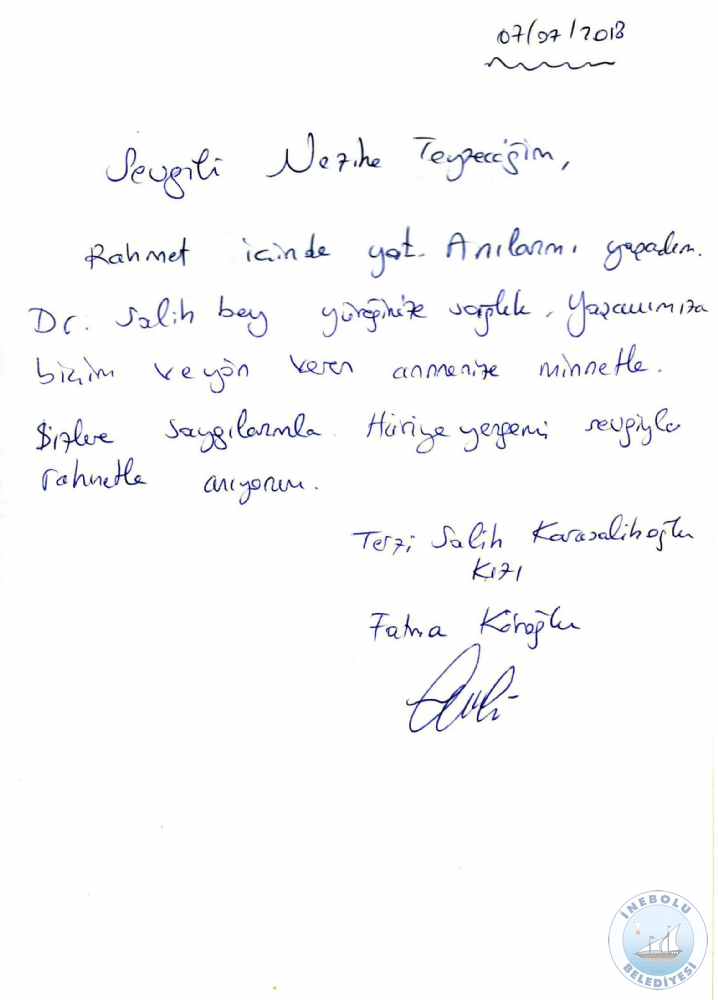 07/07/2018
Sevgili Nezihe Teyzeciğim,
Rahmet içinde yat. Anılarını yaşadım.
Dr. Salih bey yüreğinize sağlık. Yaşamımıza
biçim ve yön veren annenize minnetle.
Sizlere saygılarımla. Hüriye yengemi sevgiyle
rahmetle anıyorum.
Terzi Salih Karasalihoğlu
Kızı
Fatma Köroğlu
İNEBOLU
BELEDİYESİ